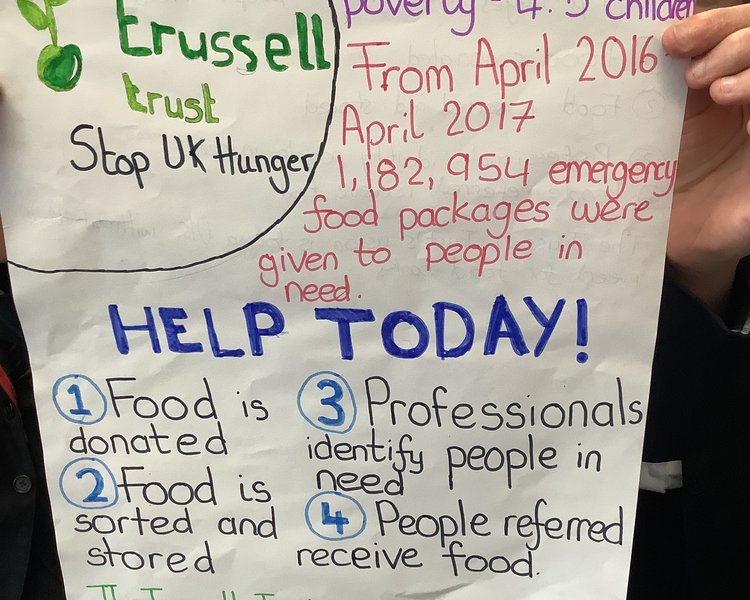 trussell
trust
Stop UK Hunger
poverty - 4.5 children
From April 2016
April 2017
1,182,954 emergency
food packages were
given to people in
need.
HELP TODAY!
1 Food is
donated
2 Food is
sorted and
stored
3 Professionals
identify people in
need
4 People referred
receive food.